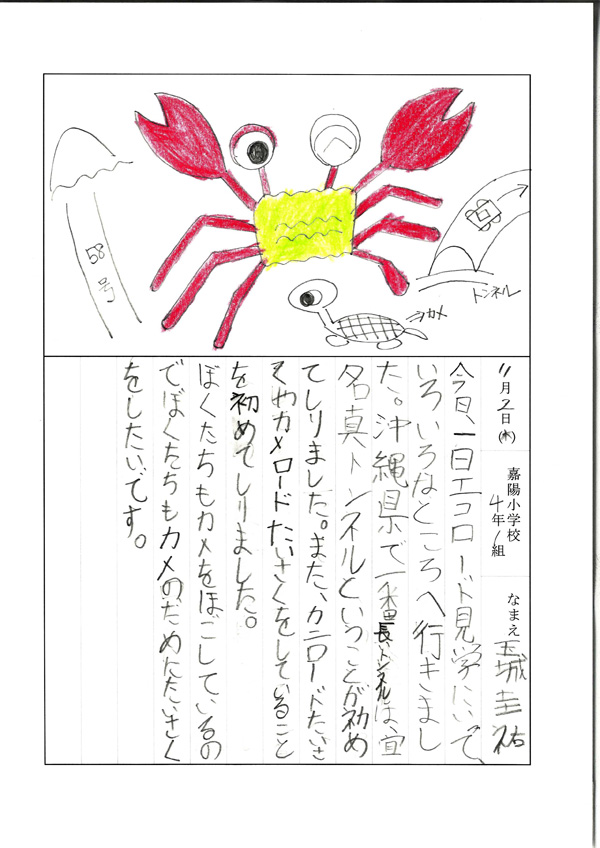 58号
トンネル
⇒カメ
11月2日(木)
嘉陽小学校
4年1組
なまえ 玉城圭祐
今日、一日エコロード見学にいて、
いろいろなところへ行きまし
た。沖縄県で一番長いトンネルは、宜
名真トンネルということが初め
てしりました。また、カニロードたいさ
くやカメロードたいさくをしていること
を初めてしりました。
ぼくたちもカメをほごしているの
でぼくたちもカメのだめたたいさく
をしたいです。